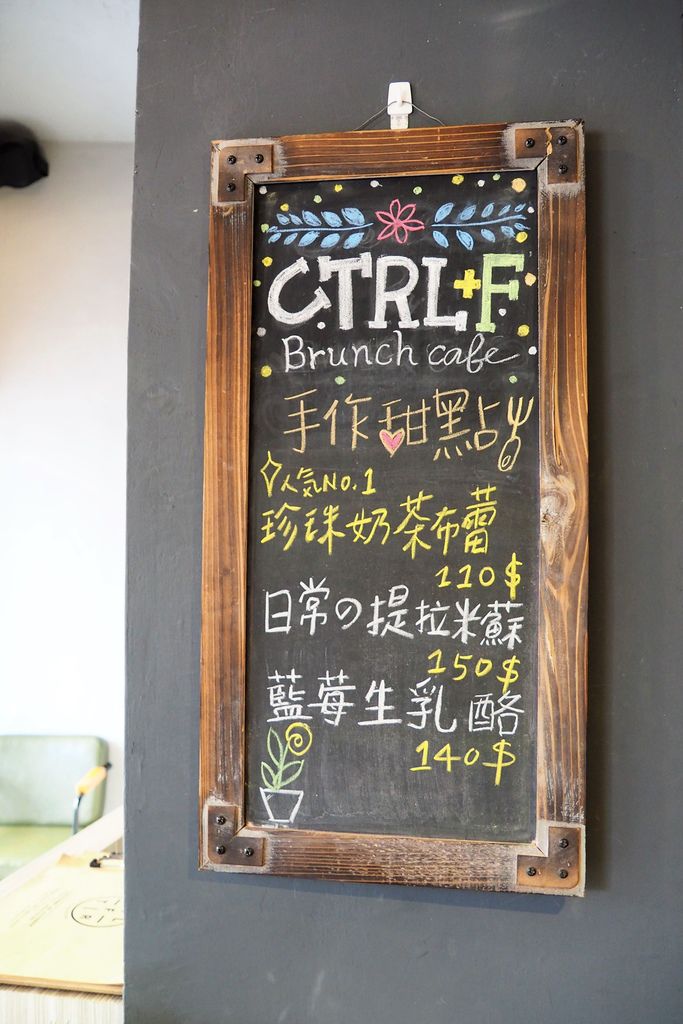 CTRL+F
Brunch cafe
手作甜點
人氣NO.1
珍珠奶茶布蕾
110$
日常の提拉米蘇
150$
藍莓生乳酪
140$